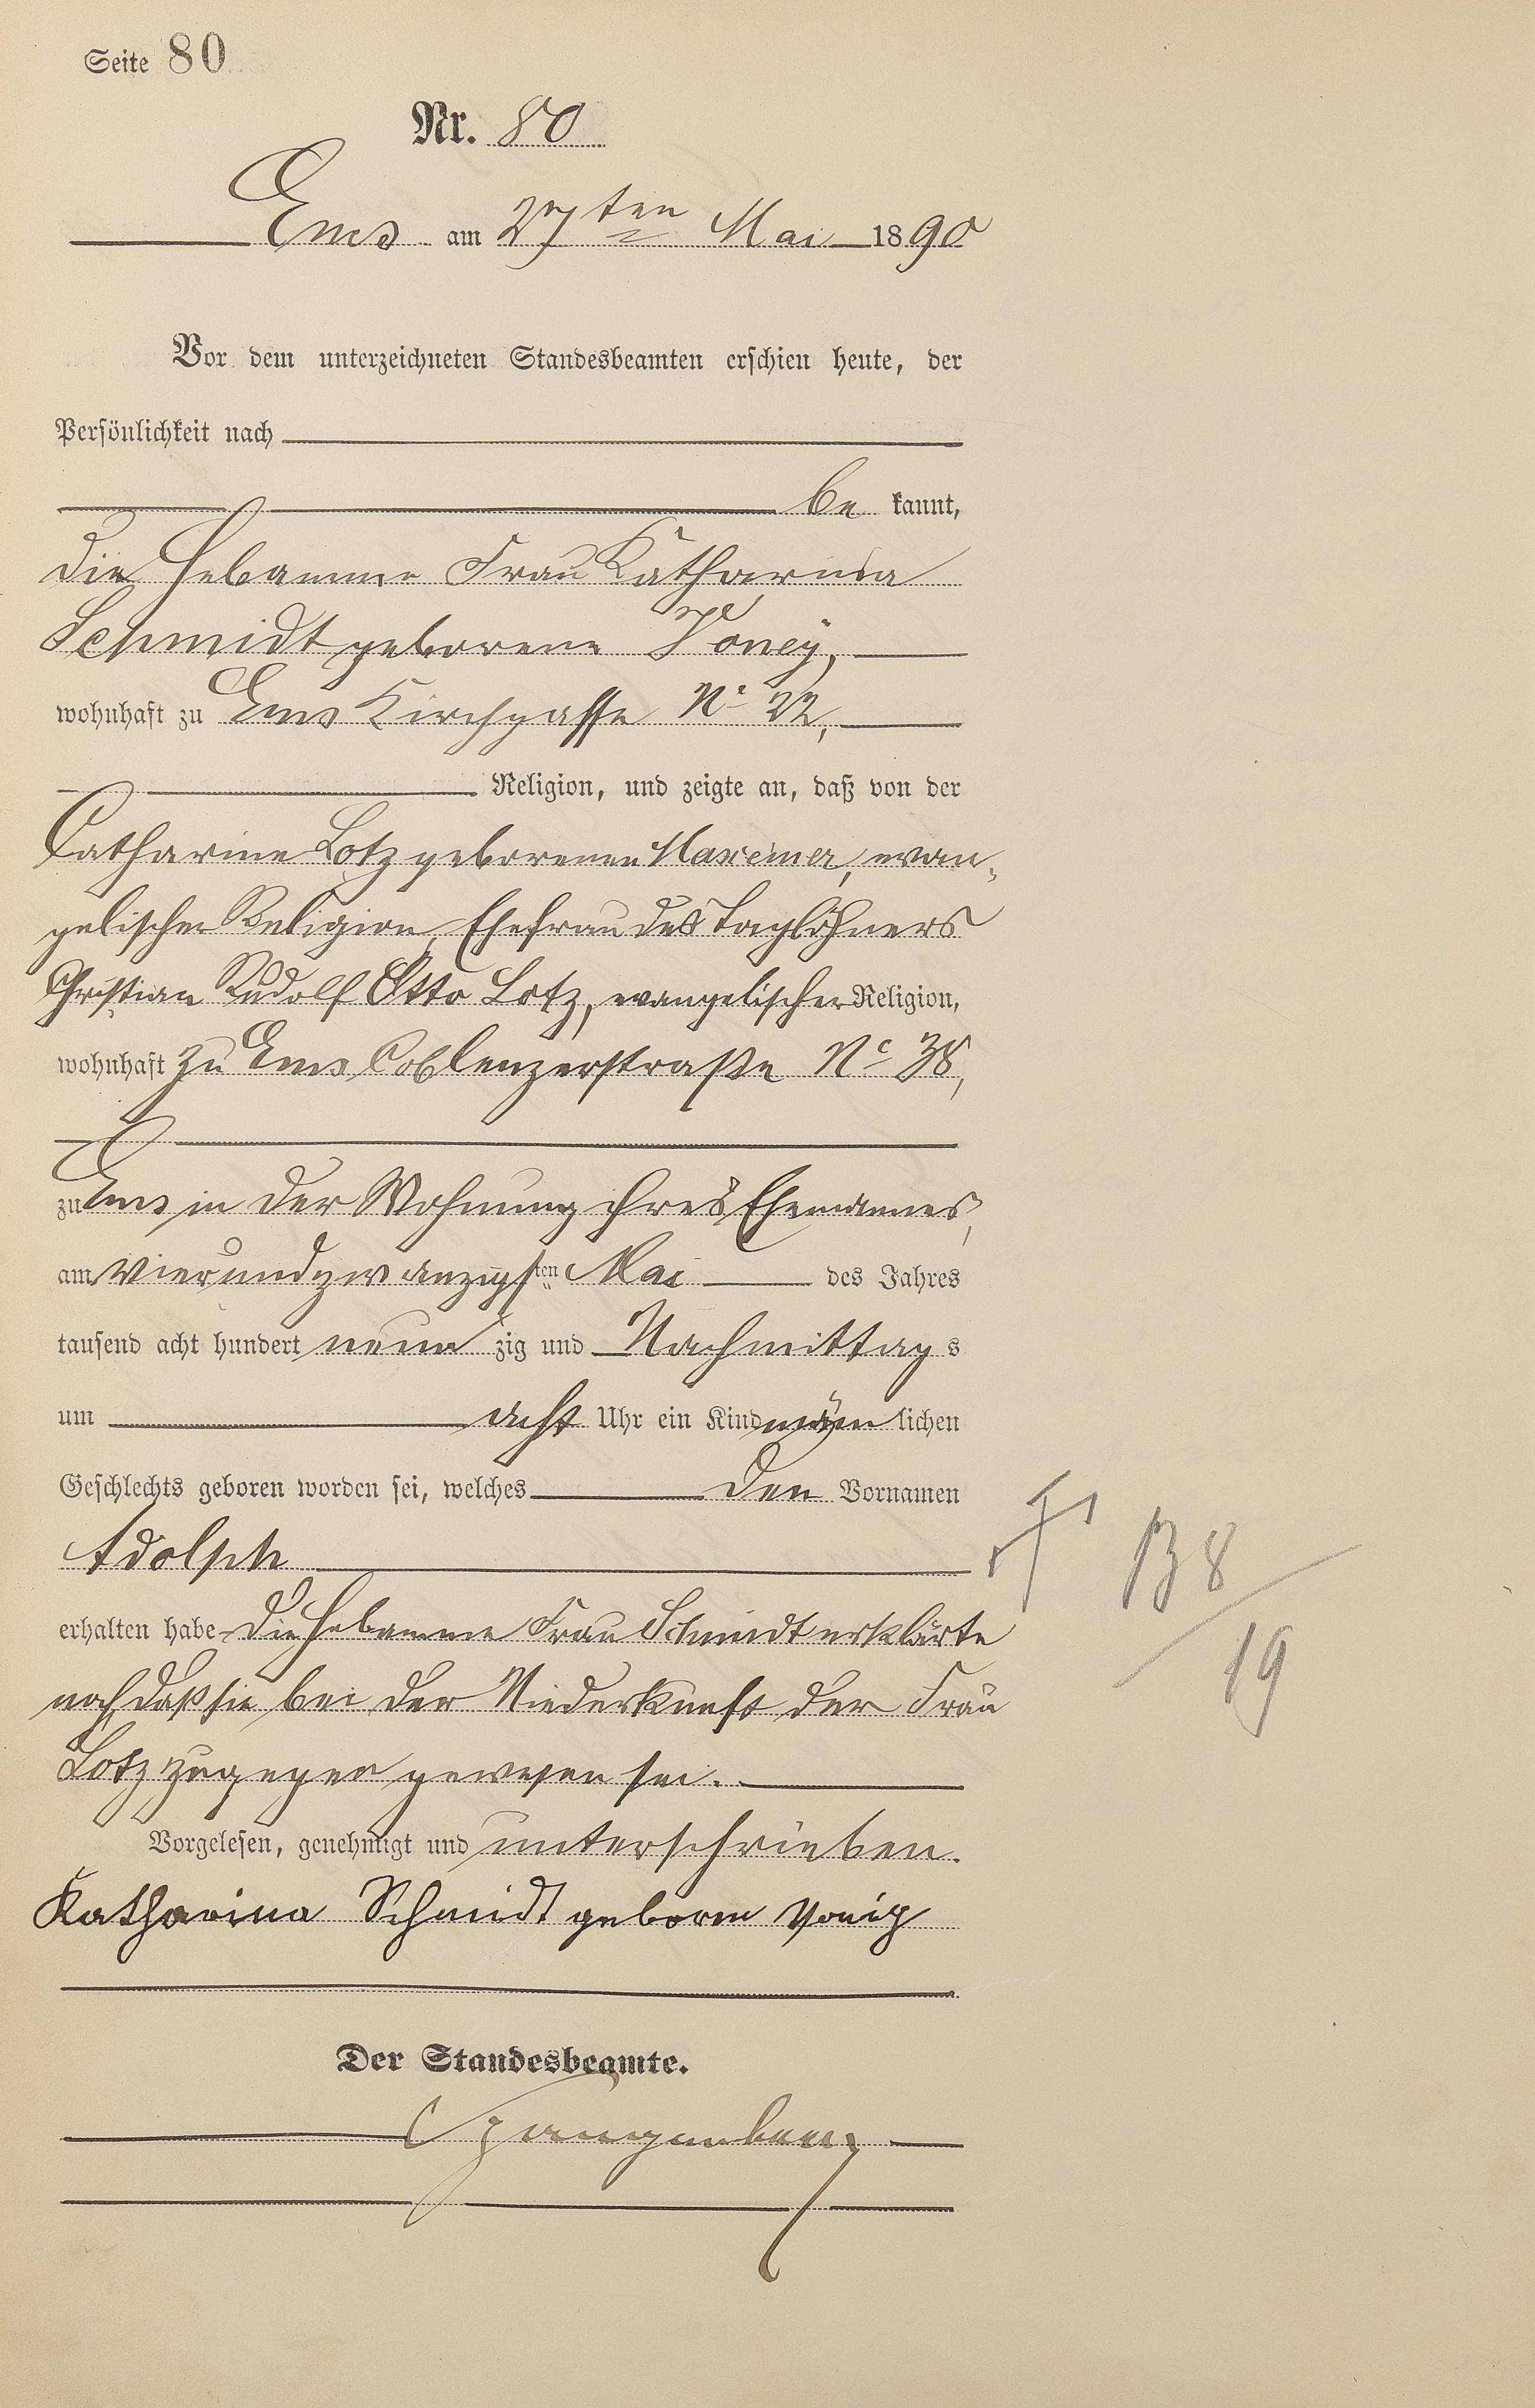 Seite 80
Nr. 80
Ems am 27ten Mai 1890
Vor dem unterzeichneten Standesbeamten erschien heute, der
Persönlichkeit nach
be kannt,
die Hebamme Frau Katharina
Schmidt geborene
wohnhaft zu Ems Kirchgasse No 22,
Religion, und zeigte an, daß von der
Catharine Lotz geborenen Maxeiner, evan-
gelischer Religion, Ehefrau des Taglöhners
Christian Rudolf Otto Lotz, evangelischer Religion,
wohnhaft zu Ems Coblenzerstraße No 38,
zu Ems in der Wohnung ihres Ehemannes,
am vierundzwanzigsten Mai des Jahres
tausend acht hundert neun zig und Nachmittag s
um acht Uhr ein Kind männ lichen
Geschlechts geboren worden sei, welches den Vornamen
Adolph
erhalten habe die Hebamme Frau Schmidt erklärte
noch, daß sie bei der Niederkunft der Frau
Lotz zugegen gewesen sei.
Vorgelesen, genehmigt und unterschrieben.
Katharina Schmidt geboren
Der Standesbeamte.
B 8
19